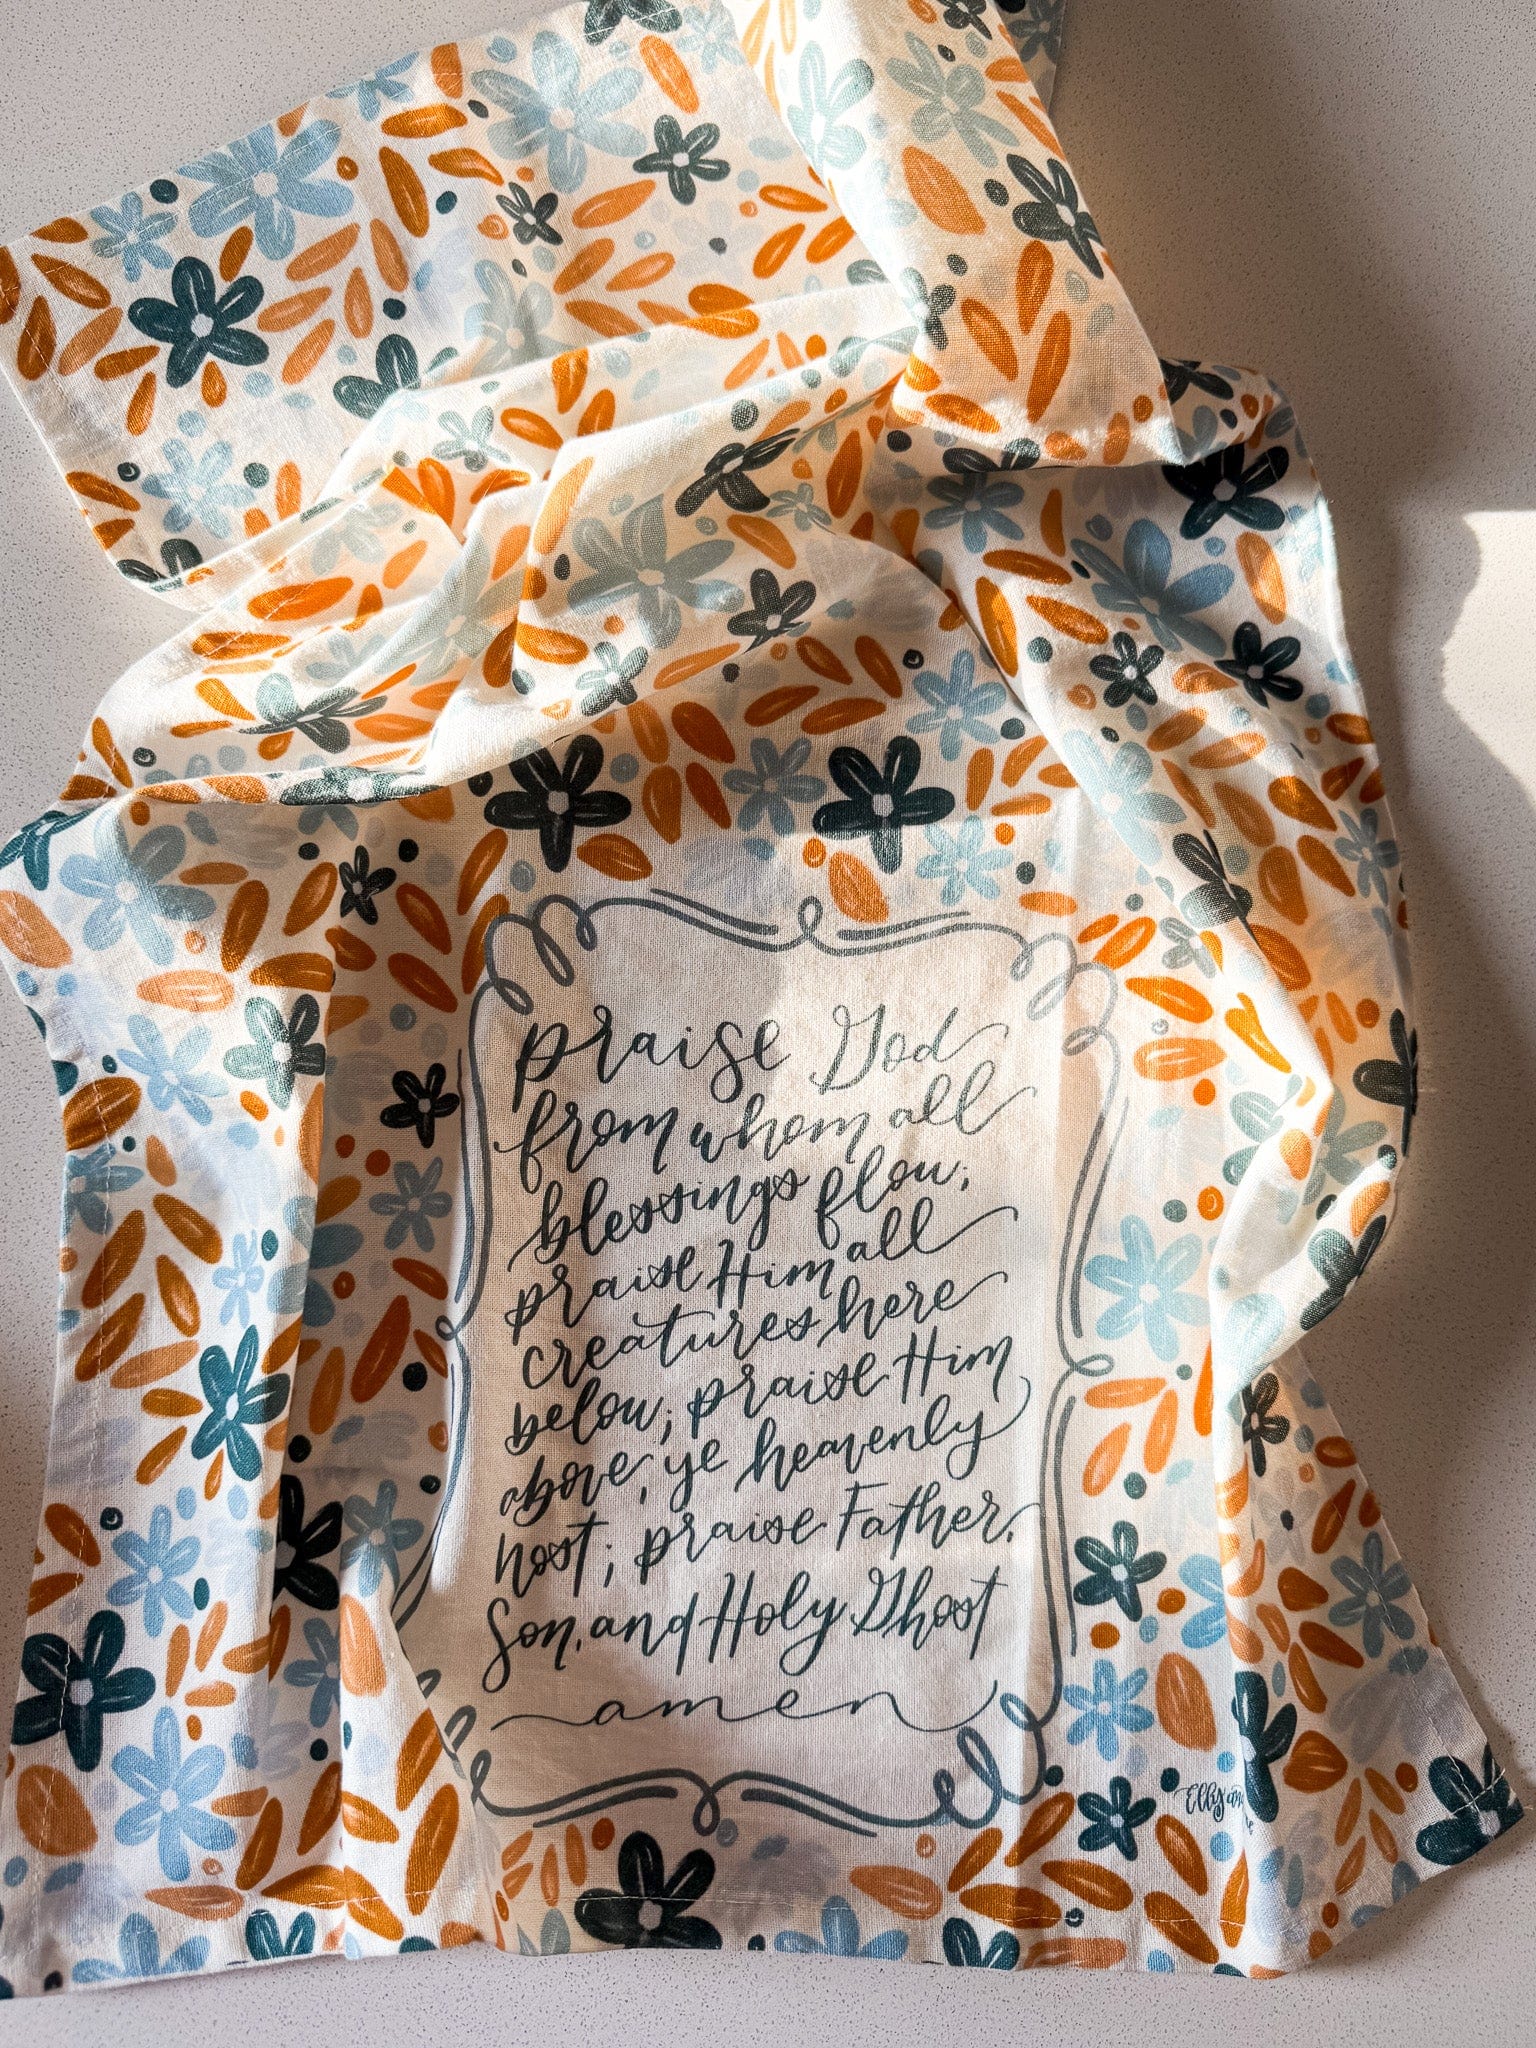 praise God
from whom all
blessings flow;
praise Him all
creatures here
below; praise Him
above, ye heavenly
host; praise Father,
Son, and Holy Ghost
amen